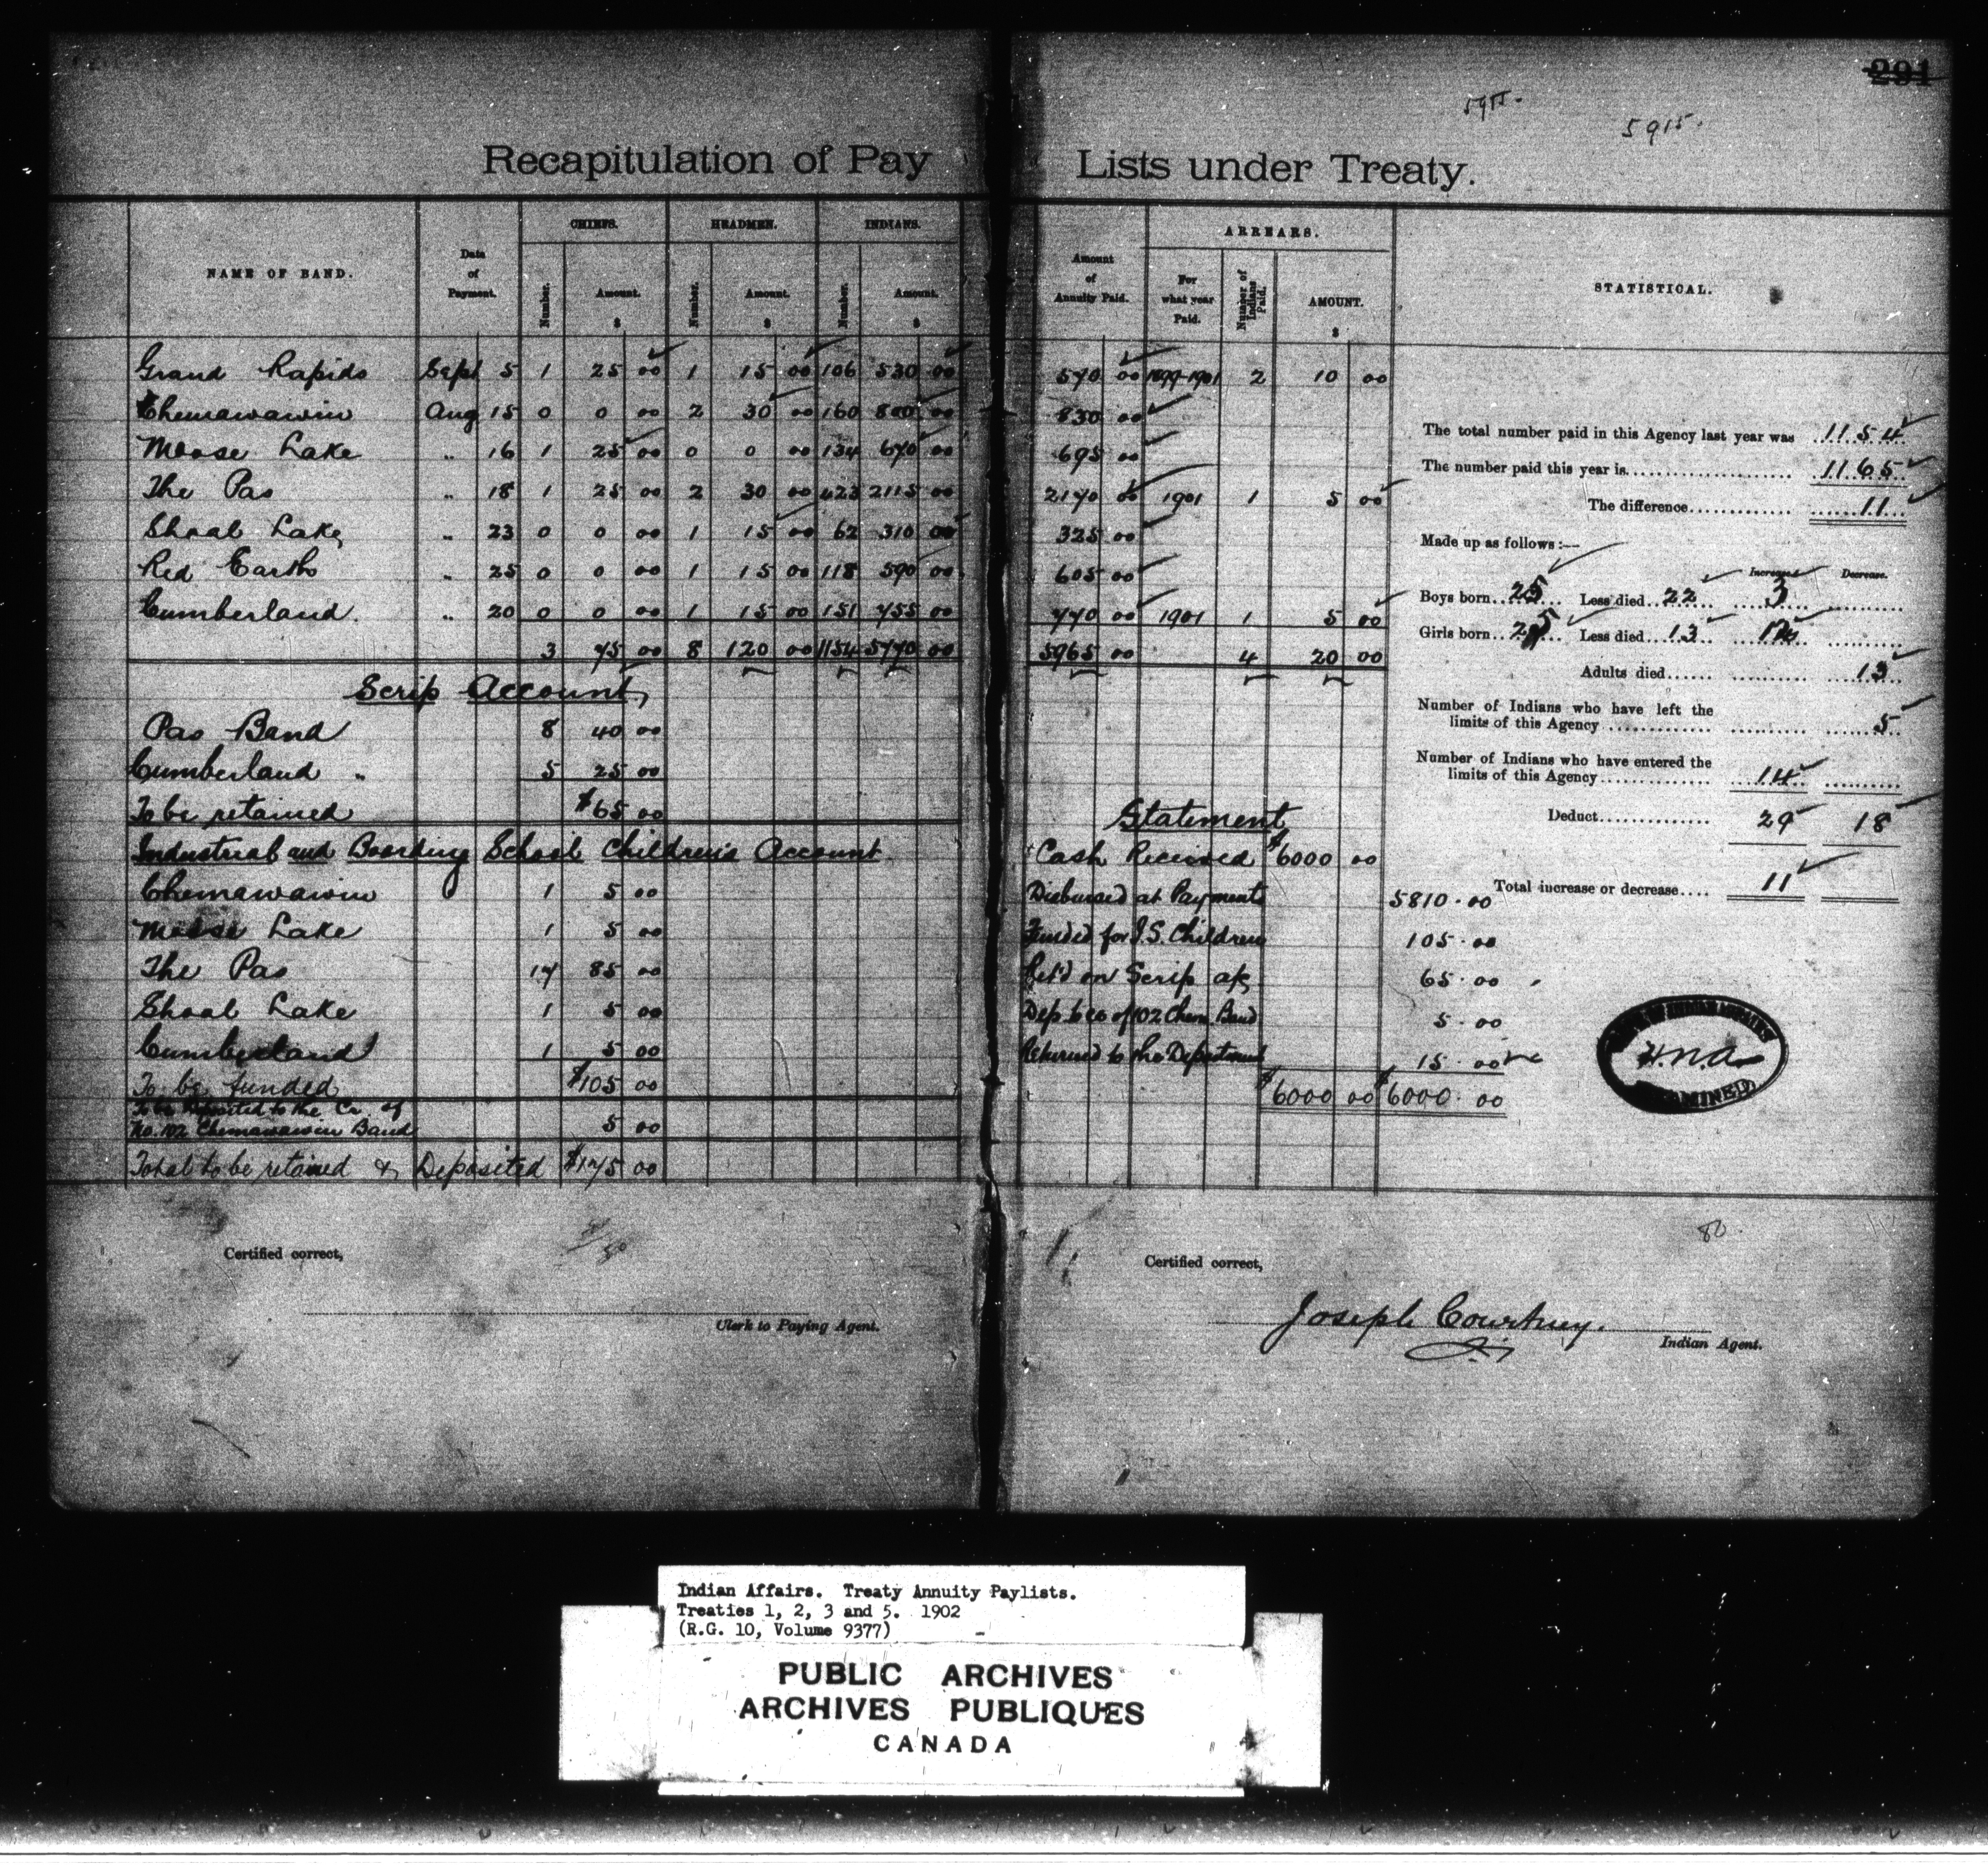 291
5915.
5915.
Recapitulation of Pay Lists under Treaty.
NAME OF BAND. Date of Payment. CHIEFS. HEADMEN. INDIANS. Amount of Annuity Paid. ARREARS. STATISTICAL.
Number. Amount. $ Number. Amount. $ Number. Amount. $ For what year Paid. Number of Indians Paid. AMOUNT. $
Grand Rapids Sept 5 1 25 00 1 15 00 106 530 00 570 00 1899-1901 2 10 00
Chemawawin Aug 15 0 0 00 2 30 00 160 800 00 830 00
Moose Lake " 16 1 25 00 0 0 00 134 670 00 695 00
The Pas " 18 1 25 00 2 30 00 423 2115 00 2170 00 1901 1 5 00
Shoal Lake " 23 0 0 00 1 15 00 62 310 00 325 00
Red Earth " 25 0 0 00 1 15 00 118 590 00 605 00
Cumberland. " 20 0 0 00 1 15 00 151 755 00 770 00 1901 1 5 00
3 75 00 8 120 00 1154 5770 00 5965 00 4 20 00
Scrip Account,
Pas Band 8 40 00
Cumberland " 5 25 00
To be retained $65 00
Industrial and Boarding School Children's Account
Chemawawin 1 5 00
Moose Lake 1 5 00
The Pas 17 85 00
Shoal Lake 1 5 00
Cumberland 1 5 00
To be funded $105 00
To be Deposited to the Cr. of
No. 102 Chemawawin Band 5 00
Total to be retained & Deposited $175 00
Statement
Cash Received $6000 00
Disbursed at Payments 5810.00
Funded for I.S. Children 105.00
Ret'd on Scrip a/c 65.00
Dep. to cr of 102 Chem. Band 5.00
Returned to the Department 15.00
$6000 00 $6000.00
The total number paid in this Agency last year was 1154
The number paid this year is 1165
The difference 11
Made up as follows:—
Increase. Decrease.
Boys born 25 Less died 22 3
Girls born 25 Less died 13 12
Adults died 13
Number of Indians who have left the
limits of this Agency 5
Number of Indians who have entered the
limits of this Agency 14
Deduct 29 18
Total increase or decrease 11
H.n.a.
EXAMINED
80
Certified correct,
Clerk to Paying Agent.
Certified correct,
Joseph Courtney.
Indian Agent.
Indian Affairs. Treaty Annuity Paylists.
Treaties 1, 2, 3 and 5. 1902
(R.G. 10, Volume 9377)
PUBLIC ARCHIVES
ARCHIVES PUBLIQUES
CANADA